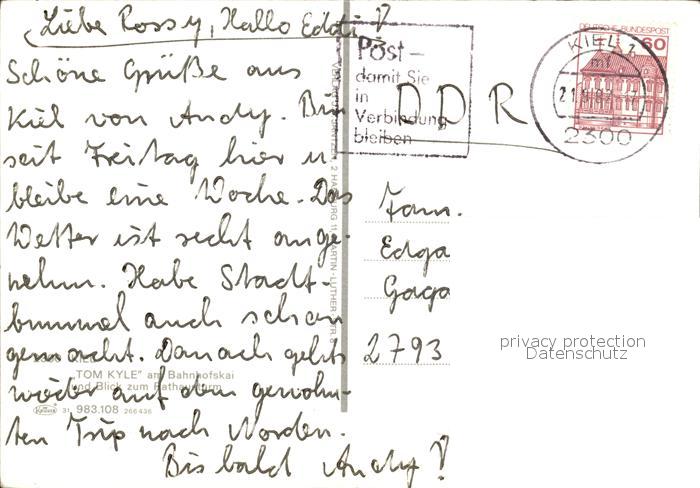 Liebe Rossy, Hallo Eddi!
Schöne Grüße aus
Kiel von Andy. Bin
seit Freitag hier u.
bleibe eine Woche. Das
Wetter ist recht ange-
nehm. Habe Stadt-
bummel auch schon
gemacht. Danach gehts
wieder auf den gewohn-
ten Trip nach Norden.
Bis bald Andy!
"TOM KYLE" am Bahnhofskai
und Blick zum Rathausturm
Krüger 31 983.108 266436
Post -
damit Sie
in
Verbindung
bleiben
DEUTSCHE BUNDESPOST
60
KIEL 1
mf
2300
DDR
Fam.
Edga
Gaga
2793
privacy protection
Datenschutz